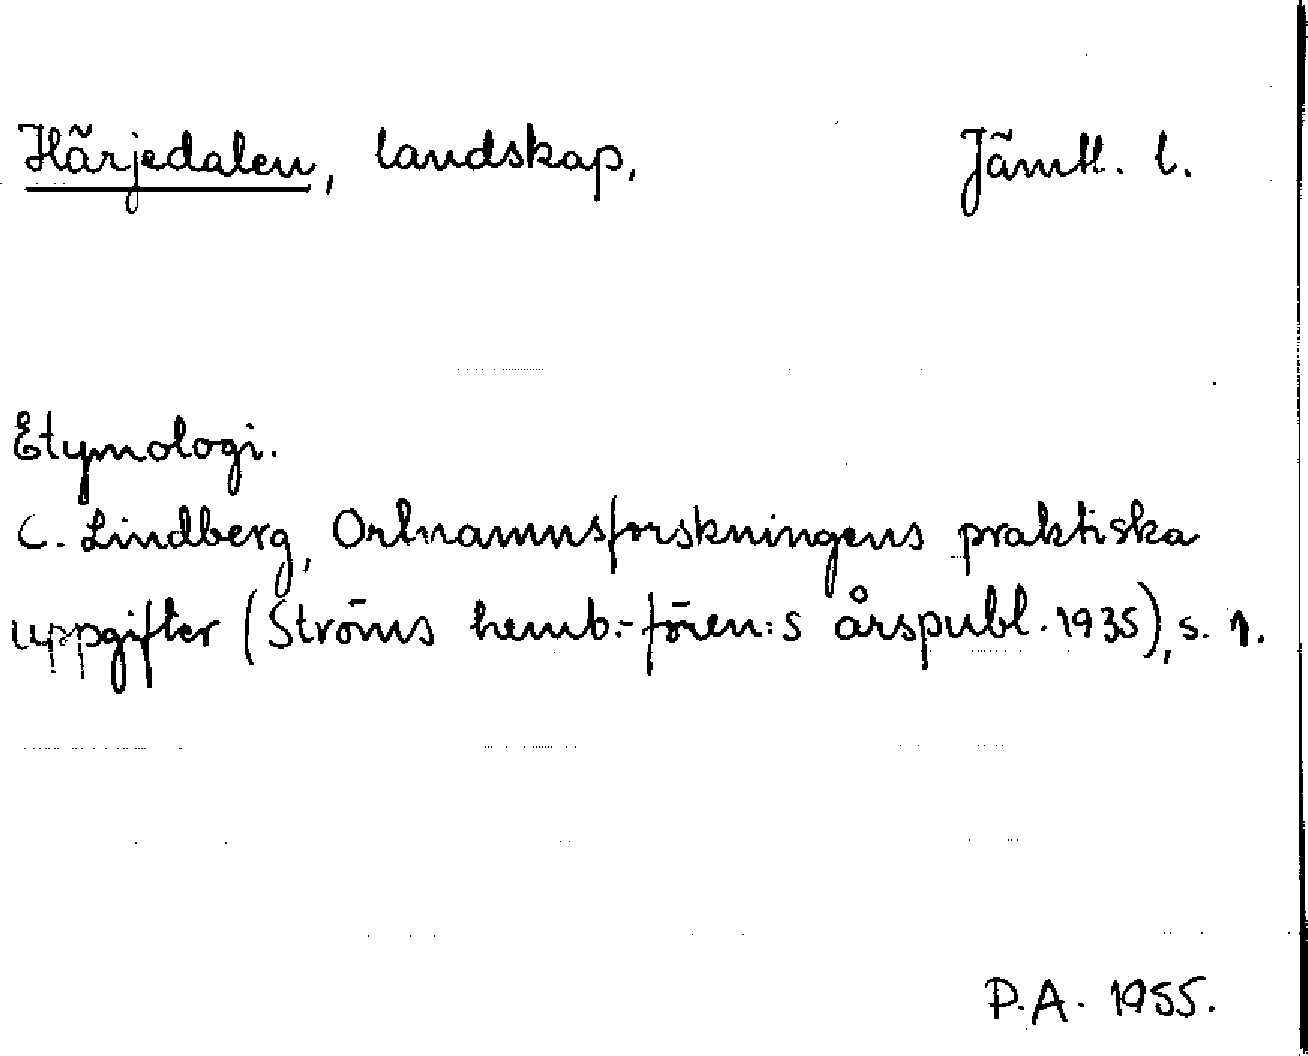 Härjedalen, landskap, Jämtl. l.
Etymologi.
C. Lindberg, Ortnamnsforskningens praktiska
uppgifter (Ströms hemb.-fören:s årspubl. 1935), s. 1.
P.A. 1955.